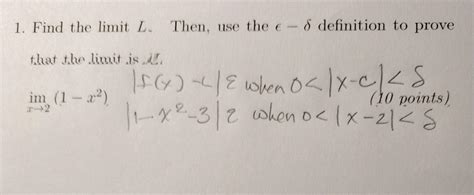 1. Find the limit L. Then, use the ϵ − δ definition to prove
that the limit is L.
|f(x) - L| ε when 0< |x-c| < δ
im (1 − x²) (10 points)
x→2
|1-x²-3| ε when 0< |x-2| < δ